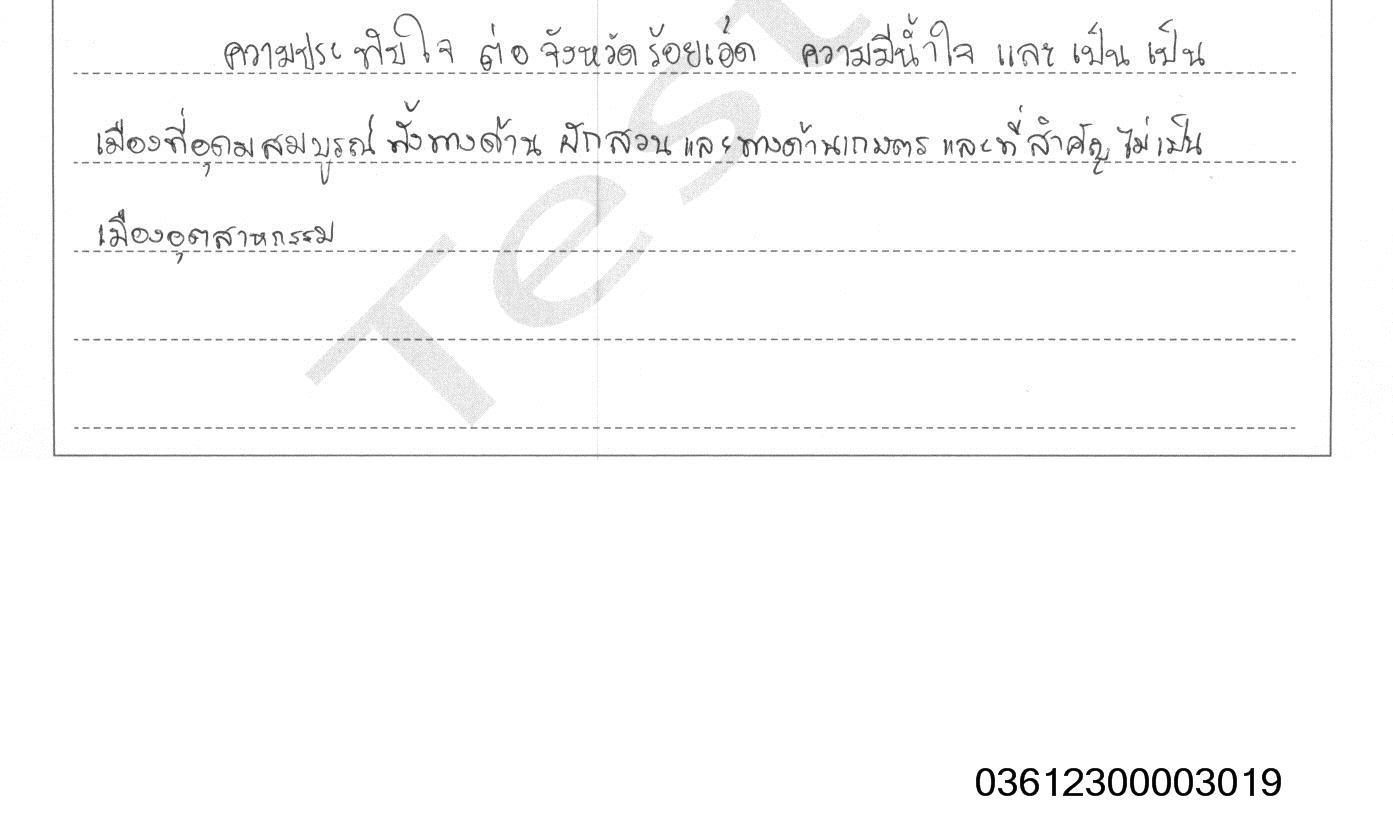 ความประทับใจ ต่อ จังหวัดร้อยเอ็ด ความมีน้ำใจ และ เป็น เป็น
เมืองที่อุดมสมบูรณ์ ทั้งทางด้าน ผักสวน และทางด้านเกษตร และที่สำคัญ ไม่เป็น
เมืองอุตสาหกรรม
Test
03612300003019